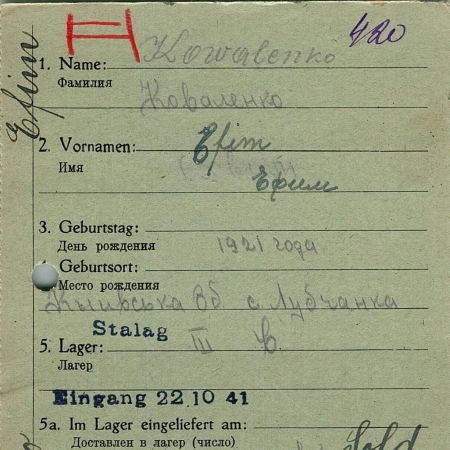 420
1. Name: Kowalenko
Фамилия
Коваленко
Efim
2. Vornamen: Efim
Имя
Ефим
3. Geburtstag:
День рождения 1921 года
Geburtsort:
Место рождения
с. Лубчанка
Stalag
5. Lager: III C.
Лагер
Eingang 22.10 41
5a. Im Lager eingeliefert am:
Доставлен в лагер (число)
Sold